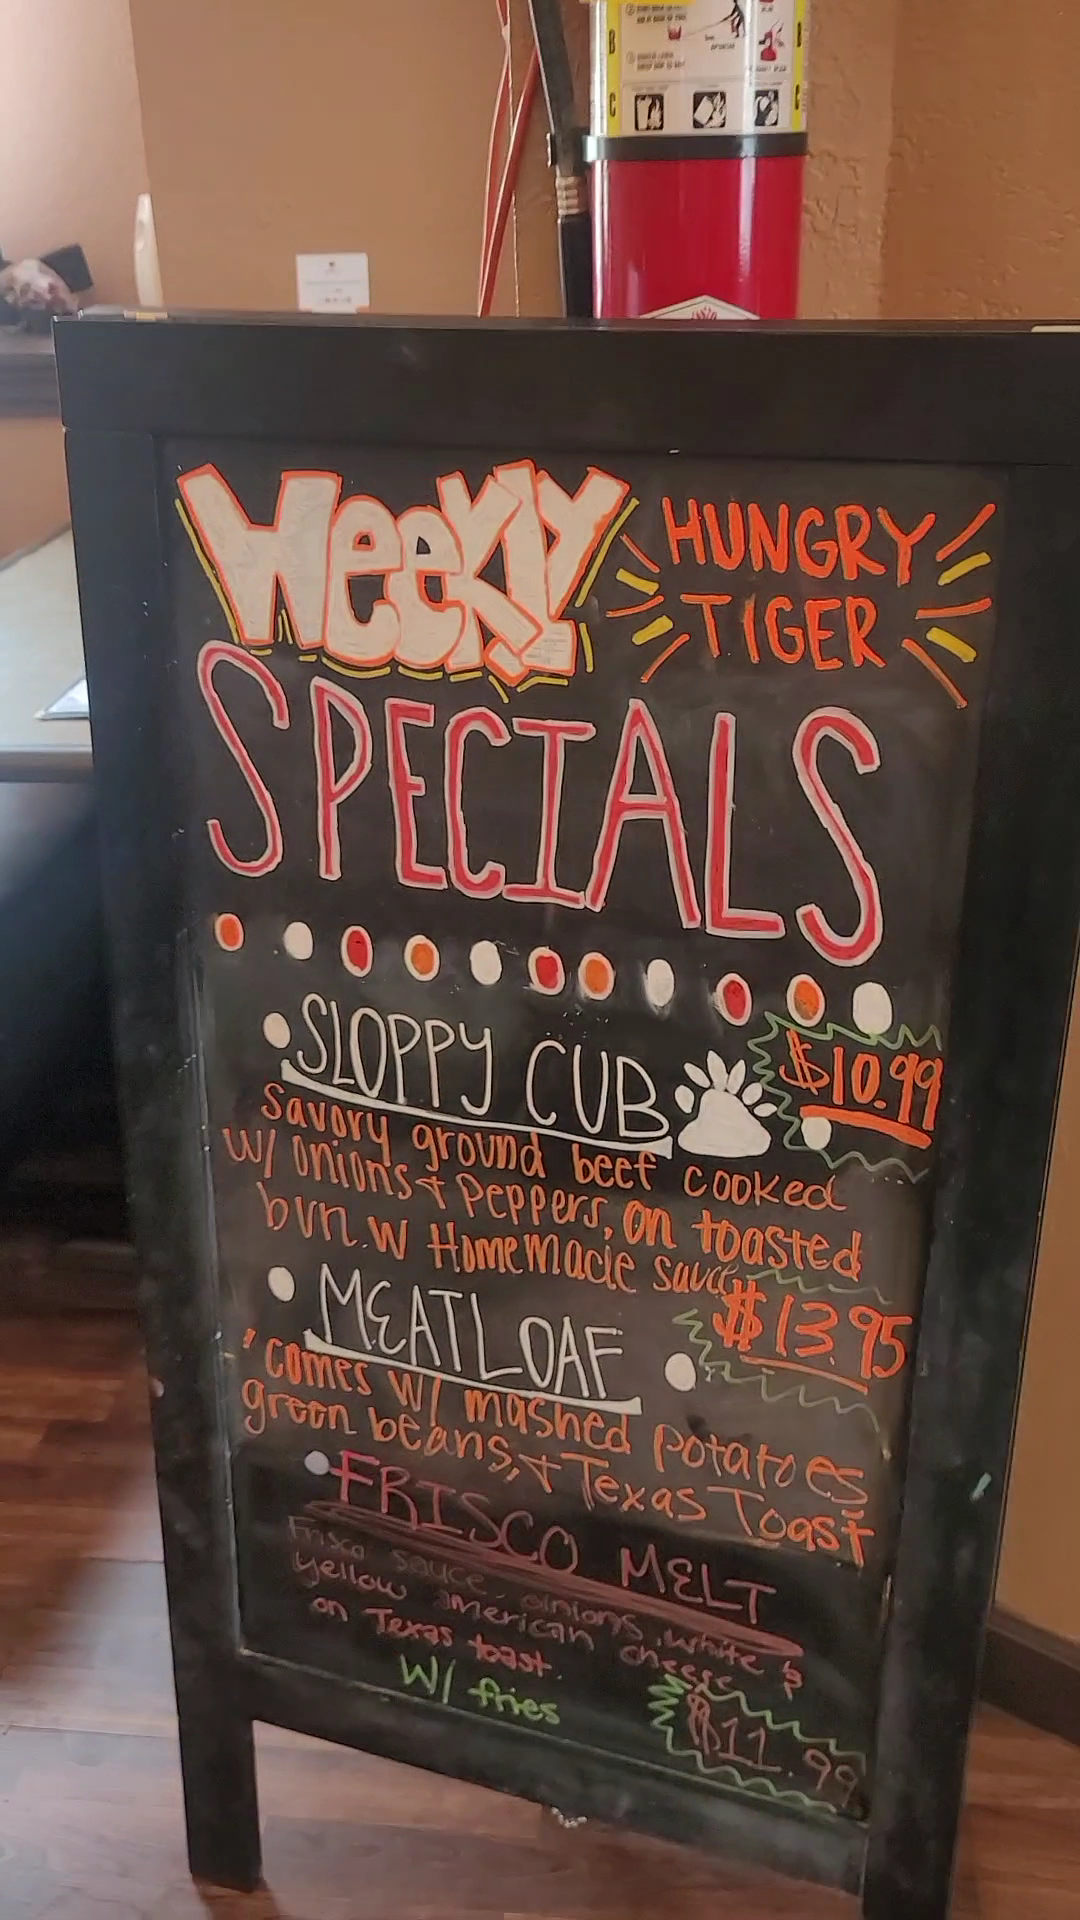 B
C
Weekly
HUNGRY
TIGER
SPECIALS
• SLOPPY CUB
$10.99
savory ground beef cooked
w/ onions + peppers, on toasted
bun. w Homemade sauce
• MEATLOAF
$13.95
'comes w/ mashed potatoes
green beans, + Texas Toast
• FRISCO MELT
Frisco sauce, oinions, white &
yellow american cheese
on Texas toast.
W/ fries
$11.99